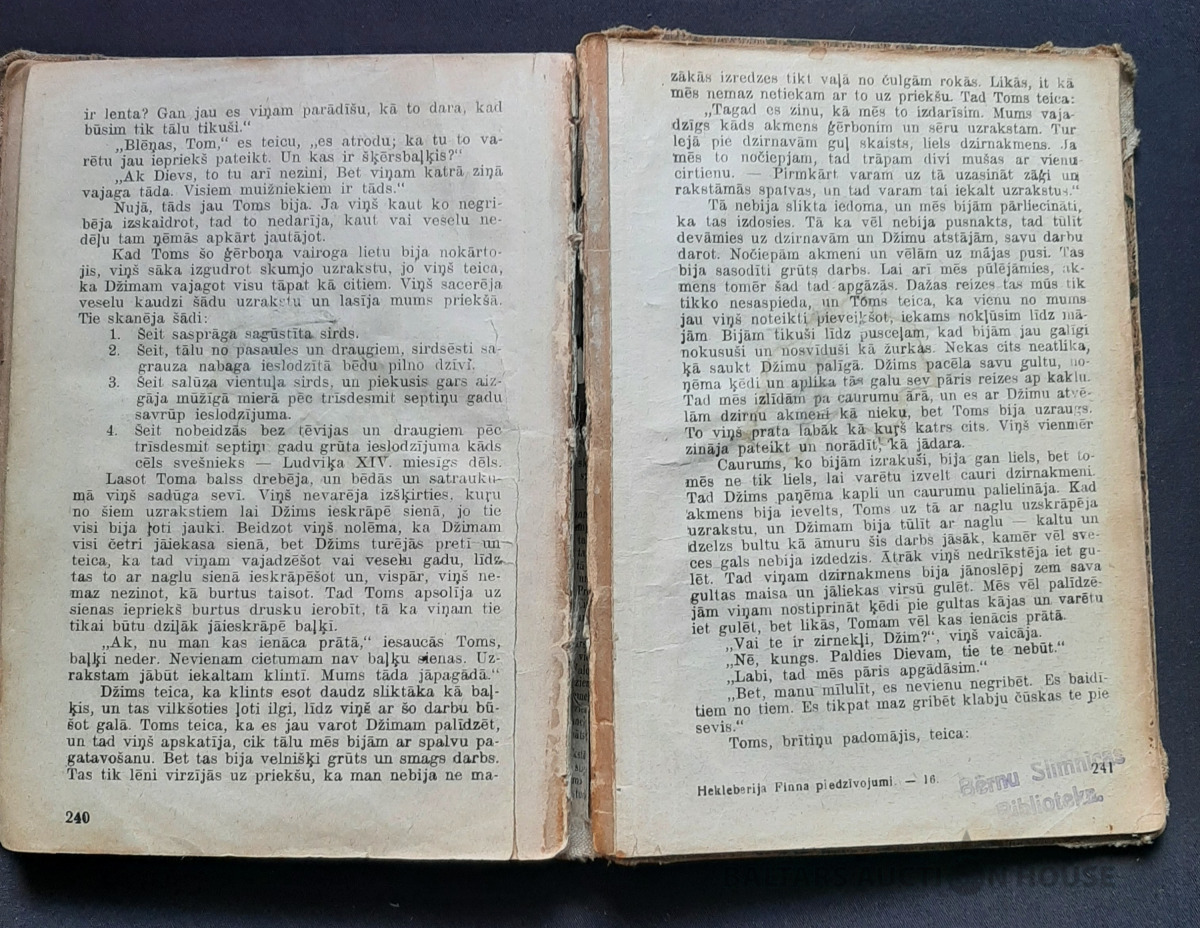 ir lenta? Gan jau es viņam parādīšu, kā to dara, kad
būsim tik tālu tikuši."
„Blēņas, Tom," es teicu, „es atrodu; ka tu to va-
rētu jau iepriekš pateikt. Un kas ir šķērsbaļķis?"
„Ak Dievs, to tu arī nezini, Bet viņam katrā ziņā
vajaga tāda. Visiem muižniekiem ir tāds."
Nujā, tāds jau Toms bija. Ja viņš kaut ko negri-
bēja izskaidrot, tad to nedarīja, kaut vai veselu ne-
dēļu tam ņēmās apkārt jautājot.
Kad Toms šo ģērboņa vairoga lietu bija nokārto-
jis, viņš sāka izgudrot skumjo uzrakstu, jo viņš teica,
ka Džimam vajagot visu tāpat kā citiem. Viņš sacerēja
veselu kaudzi šādu uzrakstu un lasīja mums priekšā.
Tie skanēja šādi:
1. Šeit sasprāga sagūstīta sirds.
2. Šeit, tālu no pasaules un draugiem, sirdsēsti sa-
grauza nabaga ieslodzītā bēdu pilno dzīvi.
3. Šeit salūza vientuļa sirds, un piekusis gars aiz-
gāja mūžīgā mierā pēc trīsdesmit septiņu gadu
savrūp ieslodzījuma.
4. Šeit nobeidzās bez tēvijas un draugiem pēc
trīsdesmit septiņi gadu grūta ieslodzījuma kāds
cēls svešnieks — Ludviķa XIV. miesīgs dēls.
Lasot Toma balss drebēja, un bēdās un satrauku-
mā viņš sadūga sevī. Viņš nevarēja izšķirties, kuŗu
no šiem uzrakstiem lai Džims ieskrāpē sienā, jo tie
visi bija ļoti jauki. Beidzot viņš nolēma, ka Džimam
visi četri jāiekasa sienā, bet Džims turējās pretī un
teica, ka tad viņam vajadzēšot vai veselu gadu, līdz
tas to ar naglu sienā ieskrāpēšot un, vispār, viņš ne-
maz nezinot, kā burtus taisot. Tad Toms apsolīja uz
sienas iepriekš burtus drusku ierobīt, tā ka viņam tie
tikai būtu dziļāk jāieskrāpē baļķī.
„Ak, nu man kas ienāca prātā," iesaucās Toms,
baļķi neder. Nevienam cietumam nav baļķu sienas. Uz-
rakstam jābūt iekaltam klintī. Mums tāda jāpagādā."
Džims teica, ka klints esot daudz sliktāka kā baļ-
ķis, un tas vilkšoties ļoti ilgi, līdz viņš ar šo darbu bū-
šot galā. Toms teica, ka es jau varot Džimam palīdzēt,
un tad viņš apskatīja, cik tālu mēs bijām ar spalvu pa-
gatavošanu. Bet tas bija velnišķi grūts un smags darbs.
Tas tik lēni virzījās uz priekšu, ka man nebija ne ma-
240
zākās izredzes tikt vaļā no čulgām rokās. Likās, it kā
mēs nemaz netiekam ar to uz priekšu. Tad Toms teica:
„Tagad es zinu, kā mēs to izdarīsim. Mums vaja-
dzīgs kāds akmens ģērbonim un sēru uzrakstam. Tur
lejā pie dzirnavām guļ skaists, liels dzirnakmens. Ja
mēs to nočiepjam, tad trāpam divi mušas ar vienu
cirtienu. — Pirmkārt varam uz tā uzasināt zāģi un
rakstāmās spalvas, un tad varam tai iekalt uzrakstus."
Tā nebija slikta iedoma, un mēs bijām pārliecināti,
ka tas izdosies. Tā ka vēl nebija pusnakts, tad tūlīt
devāmies uz dzirnavām un Džimu atstājām, savu darbu
darot. Nočiepām akmeni un vēlām uz mājas pusi. Tas
bija sasodīti grūts darbs. Lai arī mēs pūlējāmies, ak-
mens tomēr šad tad apgāzās. Dažas reizes tas mūs tik
tikko nesaspieda, un Toms teica, ka vienu no mums
jau viņš noteikti pieveikšot, iekams nokļūsim līdz mā-
jām. Bijām tikuši līdz pusceļam, kad bijām jau galīgi
nokusuši un nosvīduši kā žurkas. Nekas cits neatlika,
kā saukt Džimu palīgā. Džims pacēla savu gultu, no-
ņēma ķēdi un aplika tās galu sev pāris reizes ap kaklu.
Tad mēs izlīdām pa caurumu ārā, un es ar Džimu atvē-
lām dzirnu akmeni kā nieku, bet Toms bija uzraugs.
To viņš prata labāk kā kuŗš katrs cits. Viņš vienmēr
zināja pateikt un norādīt, kā jādara.
Caurums, ko bijām izrakuši, bija gan liels, bet to-
mēs ne tik liels, lai varētu izvelt cauri dzirnakmeni.
Tad Džims paņēma kapli un caurumu palielināja. Kad
akmens bija ievelts, Toms uz tā ar naglu uzskrāpēja
uzrakstu, un Džimam bija tūlīt ar naglu — kaltu un
dzelzs bultu kā āmuru šis darbs jāsāk, kamēr vēl sve-
ces gals nebija izdedzis. Ātrāk viņš nedrīkstēja iet gu-
lēt. Tad viņam dzirnakmens bija jānoslēpj zem sava
gultas maisa un jāliekas virsū gulēt. Mēs vēl palīdzē-
jām viņam nostiprināt ķēdi pie gultas kājas un varētu
iet gulēt, bet likās, Tomam vēl kas ienācis prātā.
„Vai te ir zirnekļi, Džim?", viņš vaicāja.
„Nē, kungs. Paldies Dievam, tie te nebūt."
„Labi, tad mēs pāris apgādāsim."
„Bet, manu mīlulīt, es nevienu negribēt. Es baidī-
tiem no tiem. Es tikpat maz gribēt klabju čūskas te pie
sevis."
Toms, brītiņu padomājis, teica:
Hekleberija Finna piedzīvojumi. — 16.
241
Bērnu Slimnīcas
Bibliotēka.
BALTARS AUCTION HOUSE